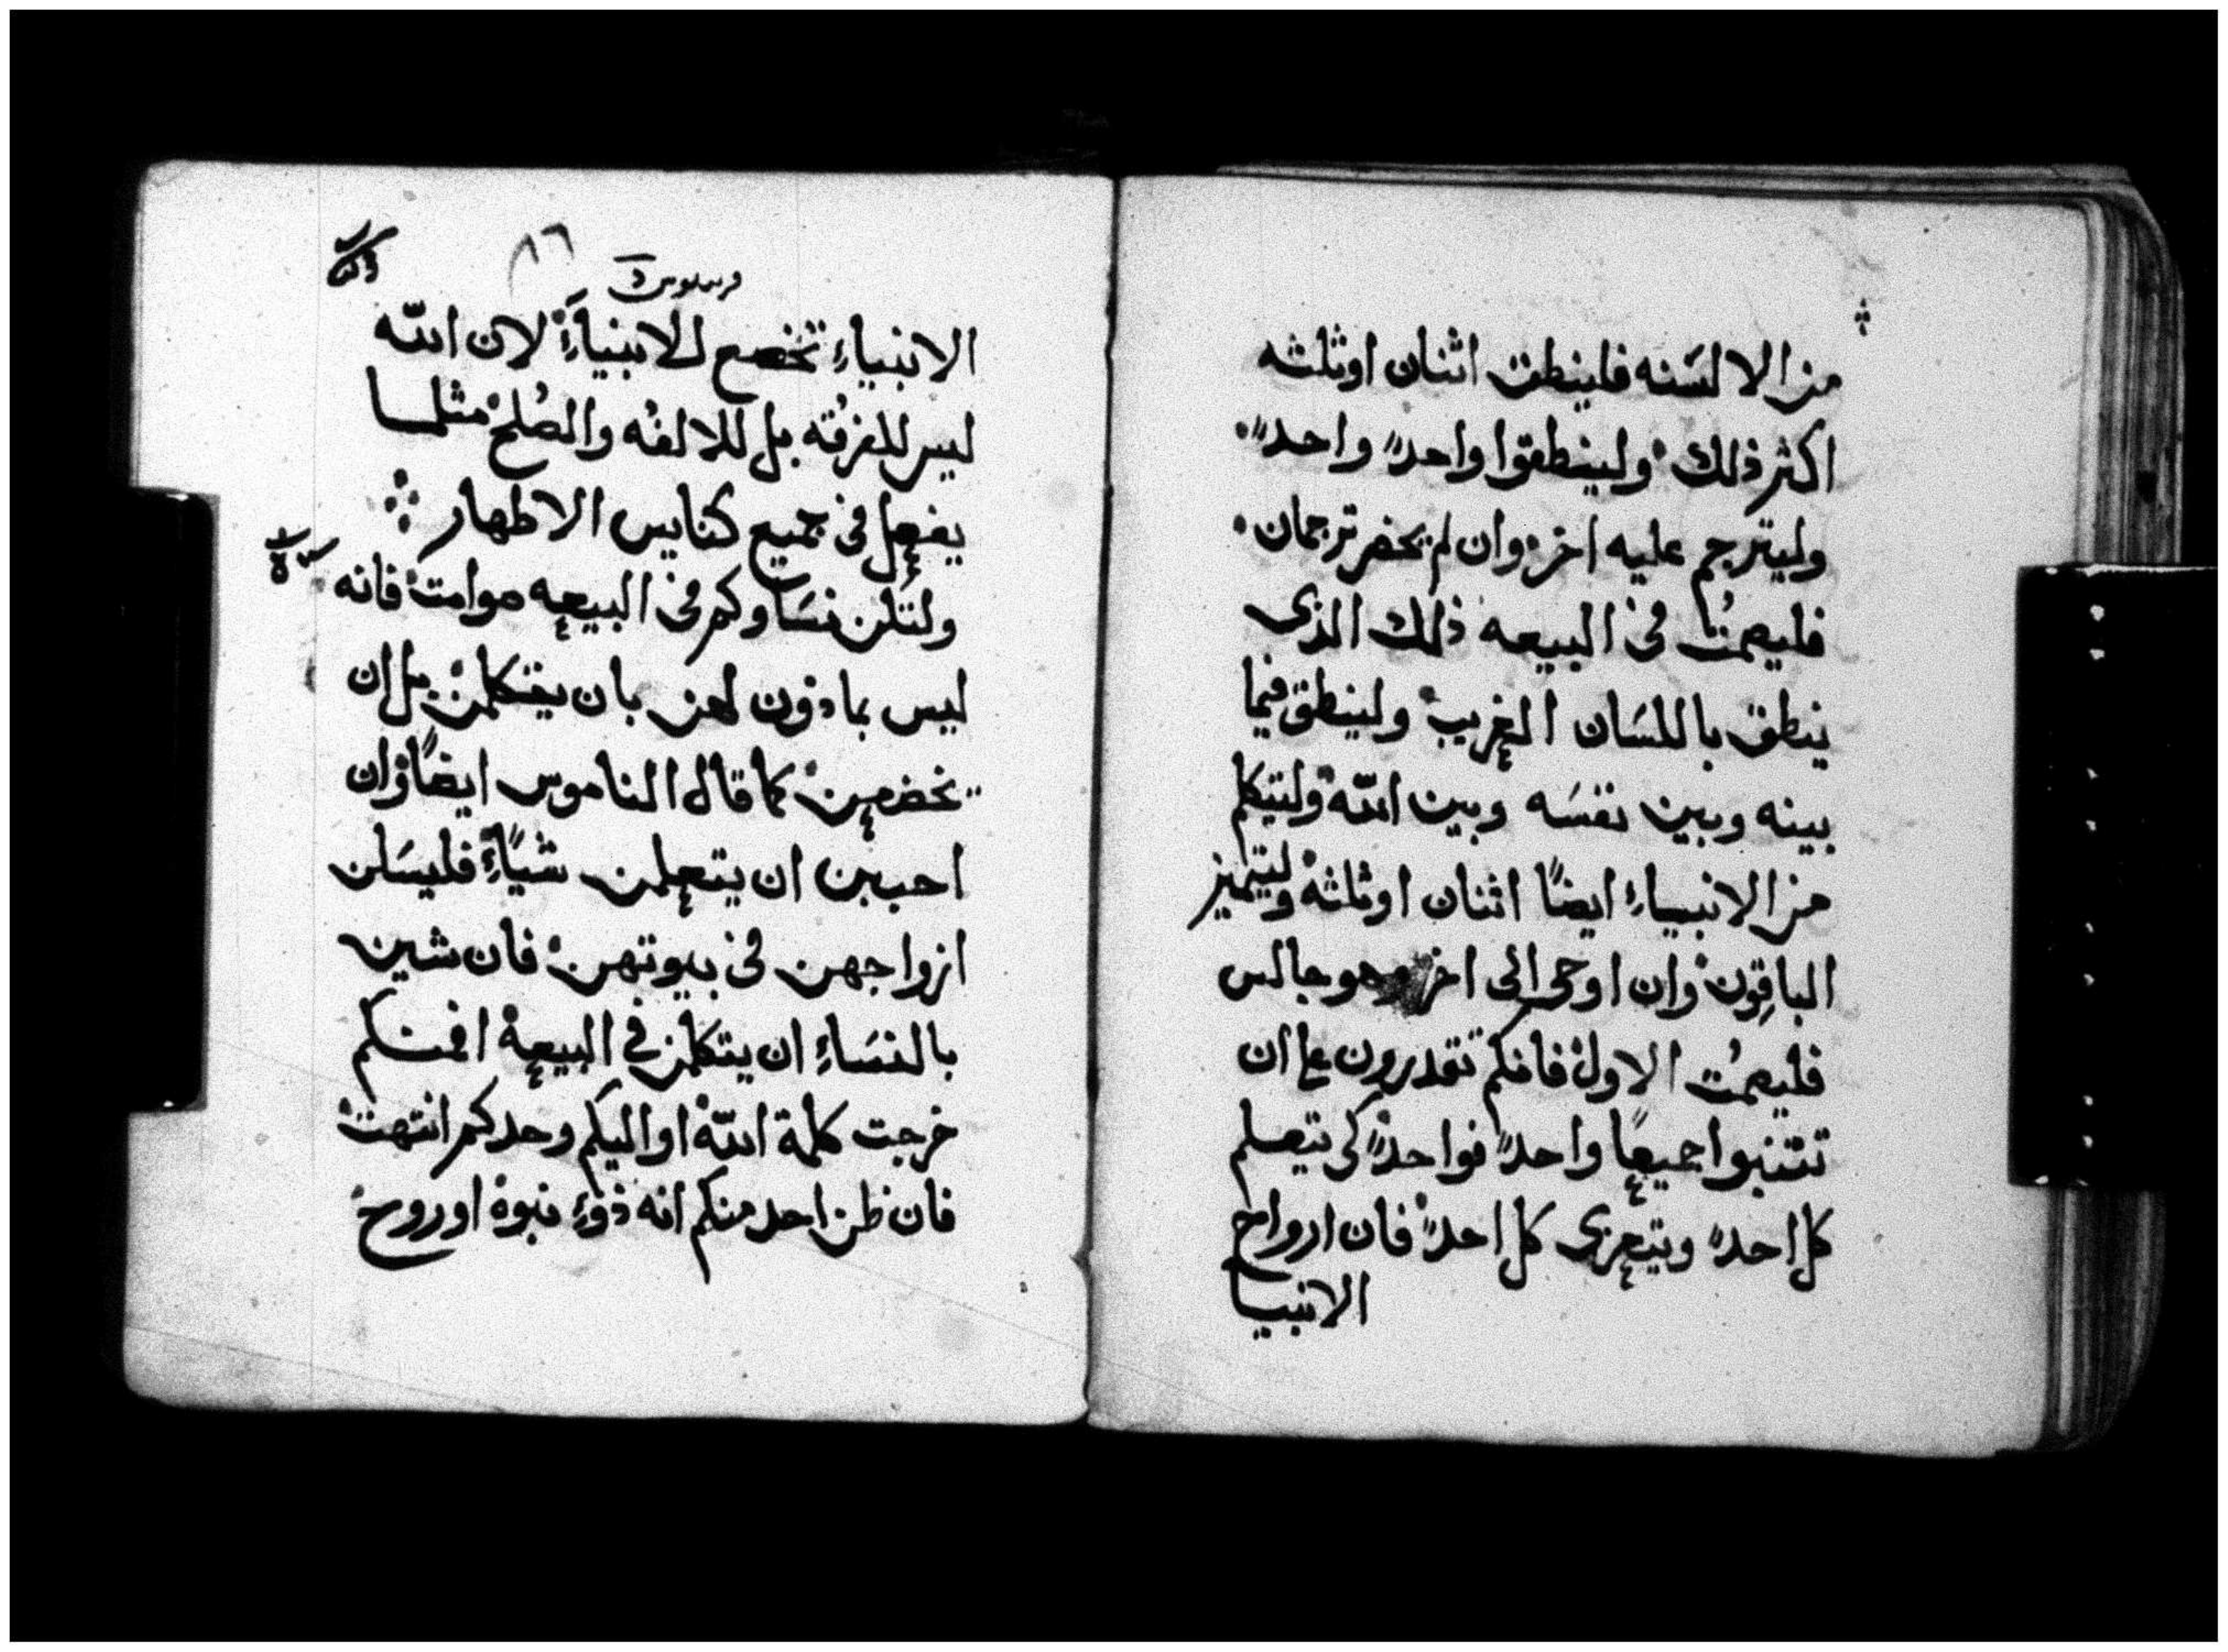 من الالسَنه فلينطق اثنان اوثلثه
اكثر ذلك ولينطقوا واحدً واحدً
وليترجم عليه اخر وان لم يحضر ترجمان
فليصمُت فى البيعه ذلك الذى
ينطق باللسَان الغريب ولينطق فيما
بينه وبين نفسَه وبين الله وليتكلم
من الانبياءِ ايضًا اثنان اوثلثه وليتميز
الباقِون وان اوحى الى اخر وهو جالس
فليصمُت الاول فانكم تقدرون على ان
تتنبوا جميعًا واحدً فواحدً كى يتعلم
كل احدً ويتعزى كل احدً فان ارواح
الانبيا
٨٦
الانبياءِ تخضع للانبياءِ لان الله
ليس للفرقُه بل للالفُه والصُلح مثلما
يفعل فى جميع كنايس الاطهار
ولتكن نسَاوكم فى البيعه صوامت فانه
ليس بماذون لهن بان يتكلمن بل ان
يخضعن كما قال الناموس ايضًا وان
احببن ان يتعلمن شيًاءِ فليسَلن
ازواجهن فى بيوتهن فان شين
بالنسَاءِ ان يتكلمن فى البيعه افمنكم
خرجت كلمة الله او اليكم وحدكم انتهت
فان ظن احد منكم انه ذوءِ نبوه اوروح